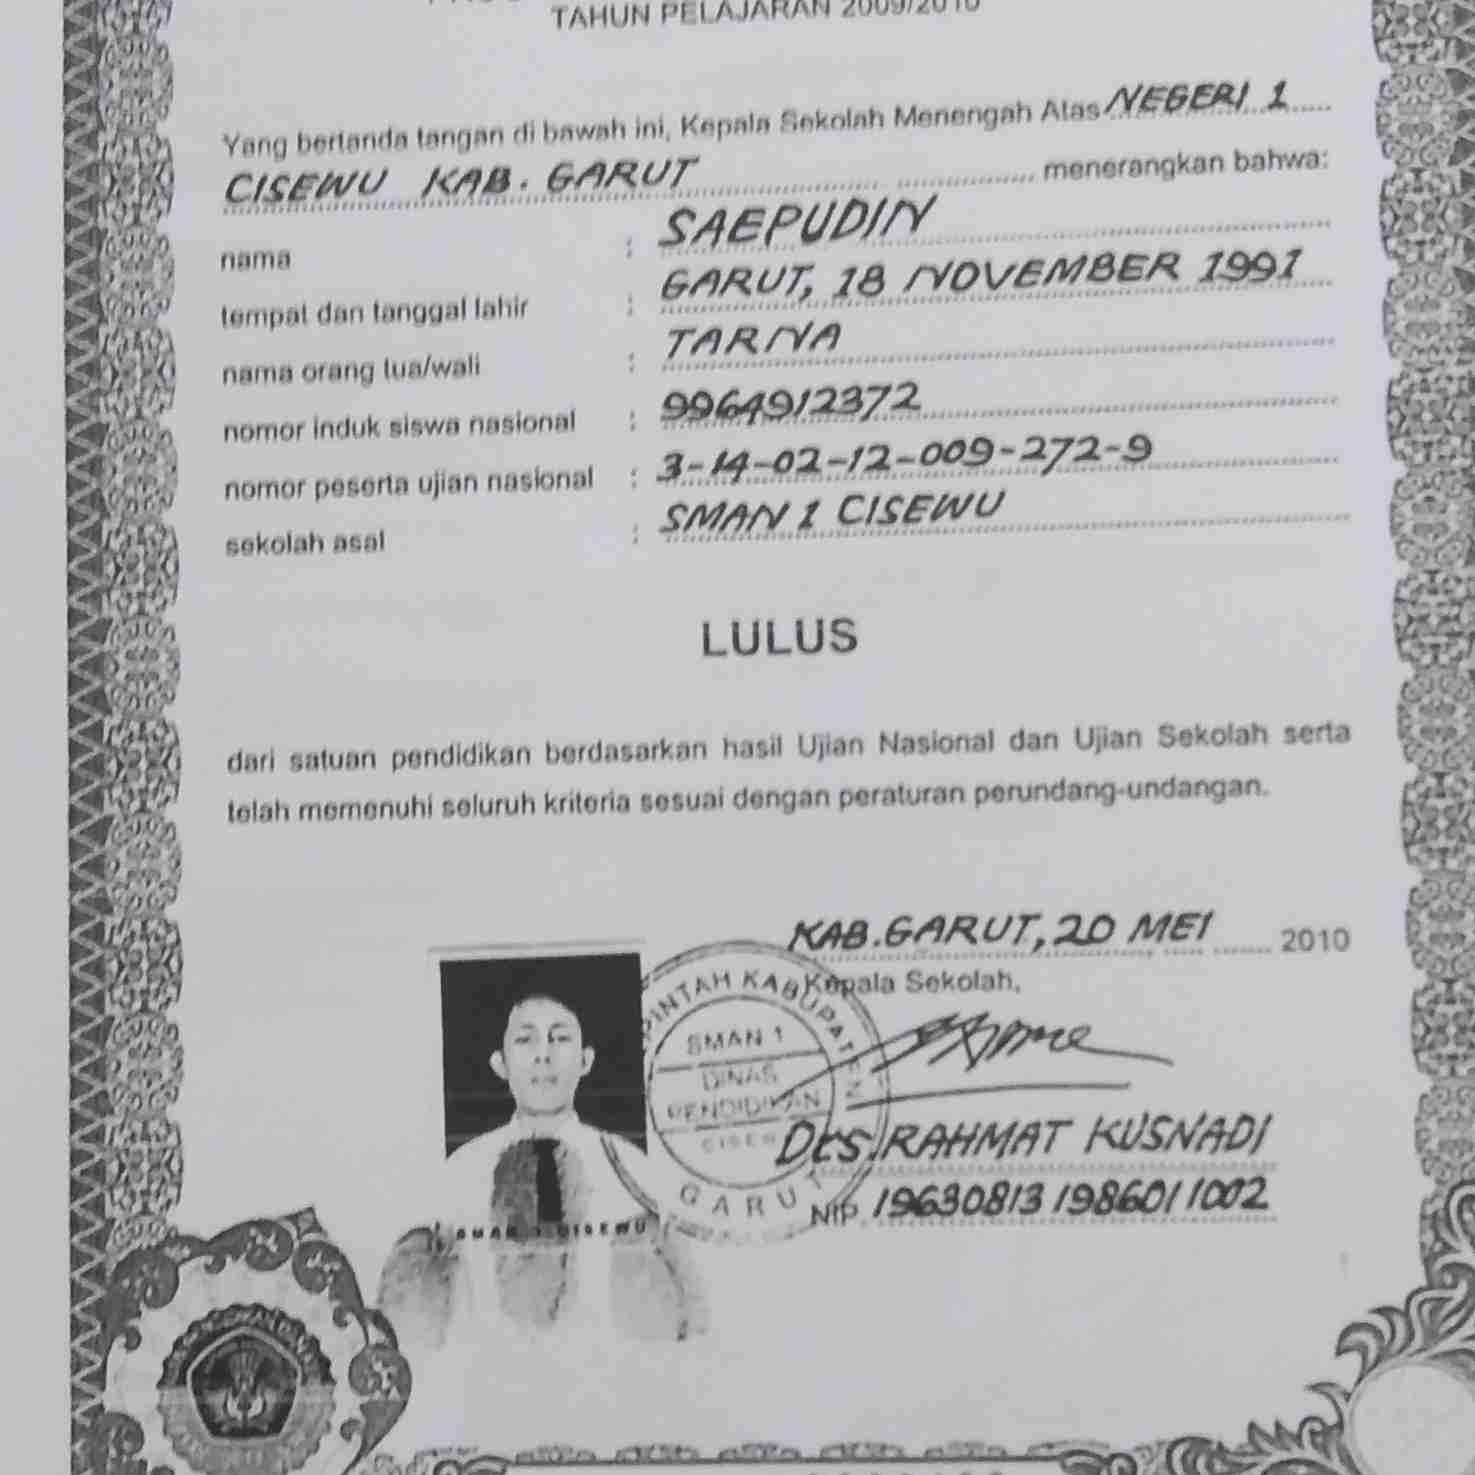 TAHUN PELAJARAN 2009/2010
Yang bertanda tangan di bawah ini, Kepala Sekolah Menengah Atas NEGERI 1
CISEWU KAB. GARUT menerangkan bahwa:
nama : SAEPUDIN
tempat dan tanggal lahir : GARUT, 18 NOVEMBER 1991
nama orang tua/wali : TARNA
nomor induk siswa nasional : 9964912372
nomor peserta ujian nasional : 3-14-02-12-009-272-9
sekolah asal : SMAN 1 CISEWU
LULUS
dari satuan pendidikan berdasarkan hasil Ujian Nasional dan Ujian Sekolah serta
telah memenuhi seluruh kriteria sesuai dengan peraturan perundang-undangan.
KAB. GARUT, 20 MEI 2010
Kepala Sekolah,
KABUPATEN
SMAN 1
DINAS
PENDIDIKAN
GARUT
Drs. RAHMAT KUSNADI
NIP. 19630813 198601 1002
SMAN 1 CISEWU